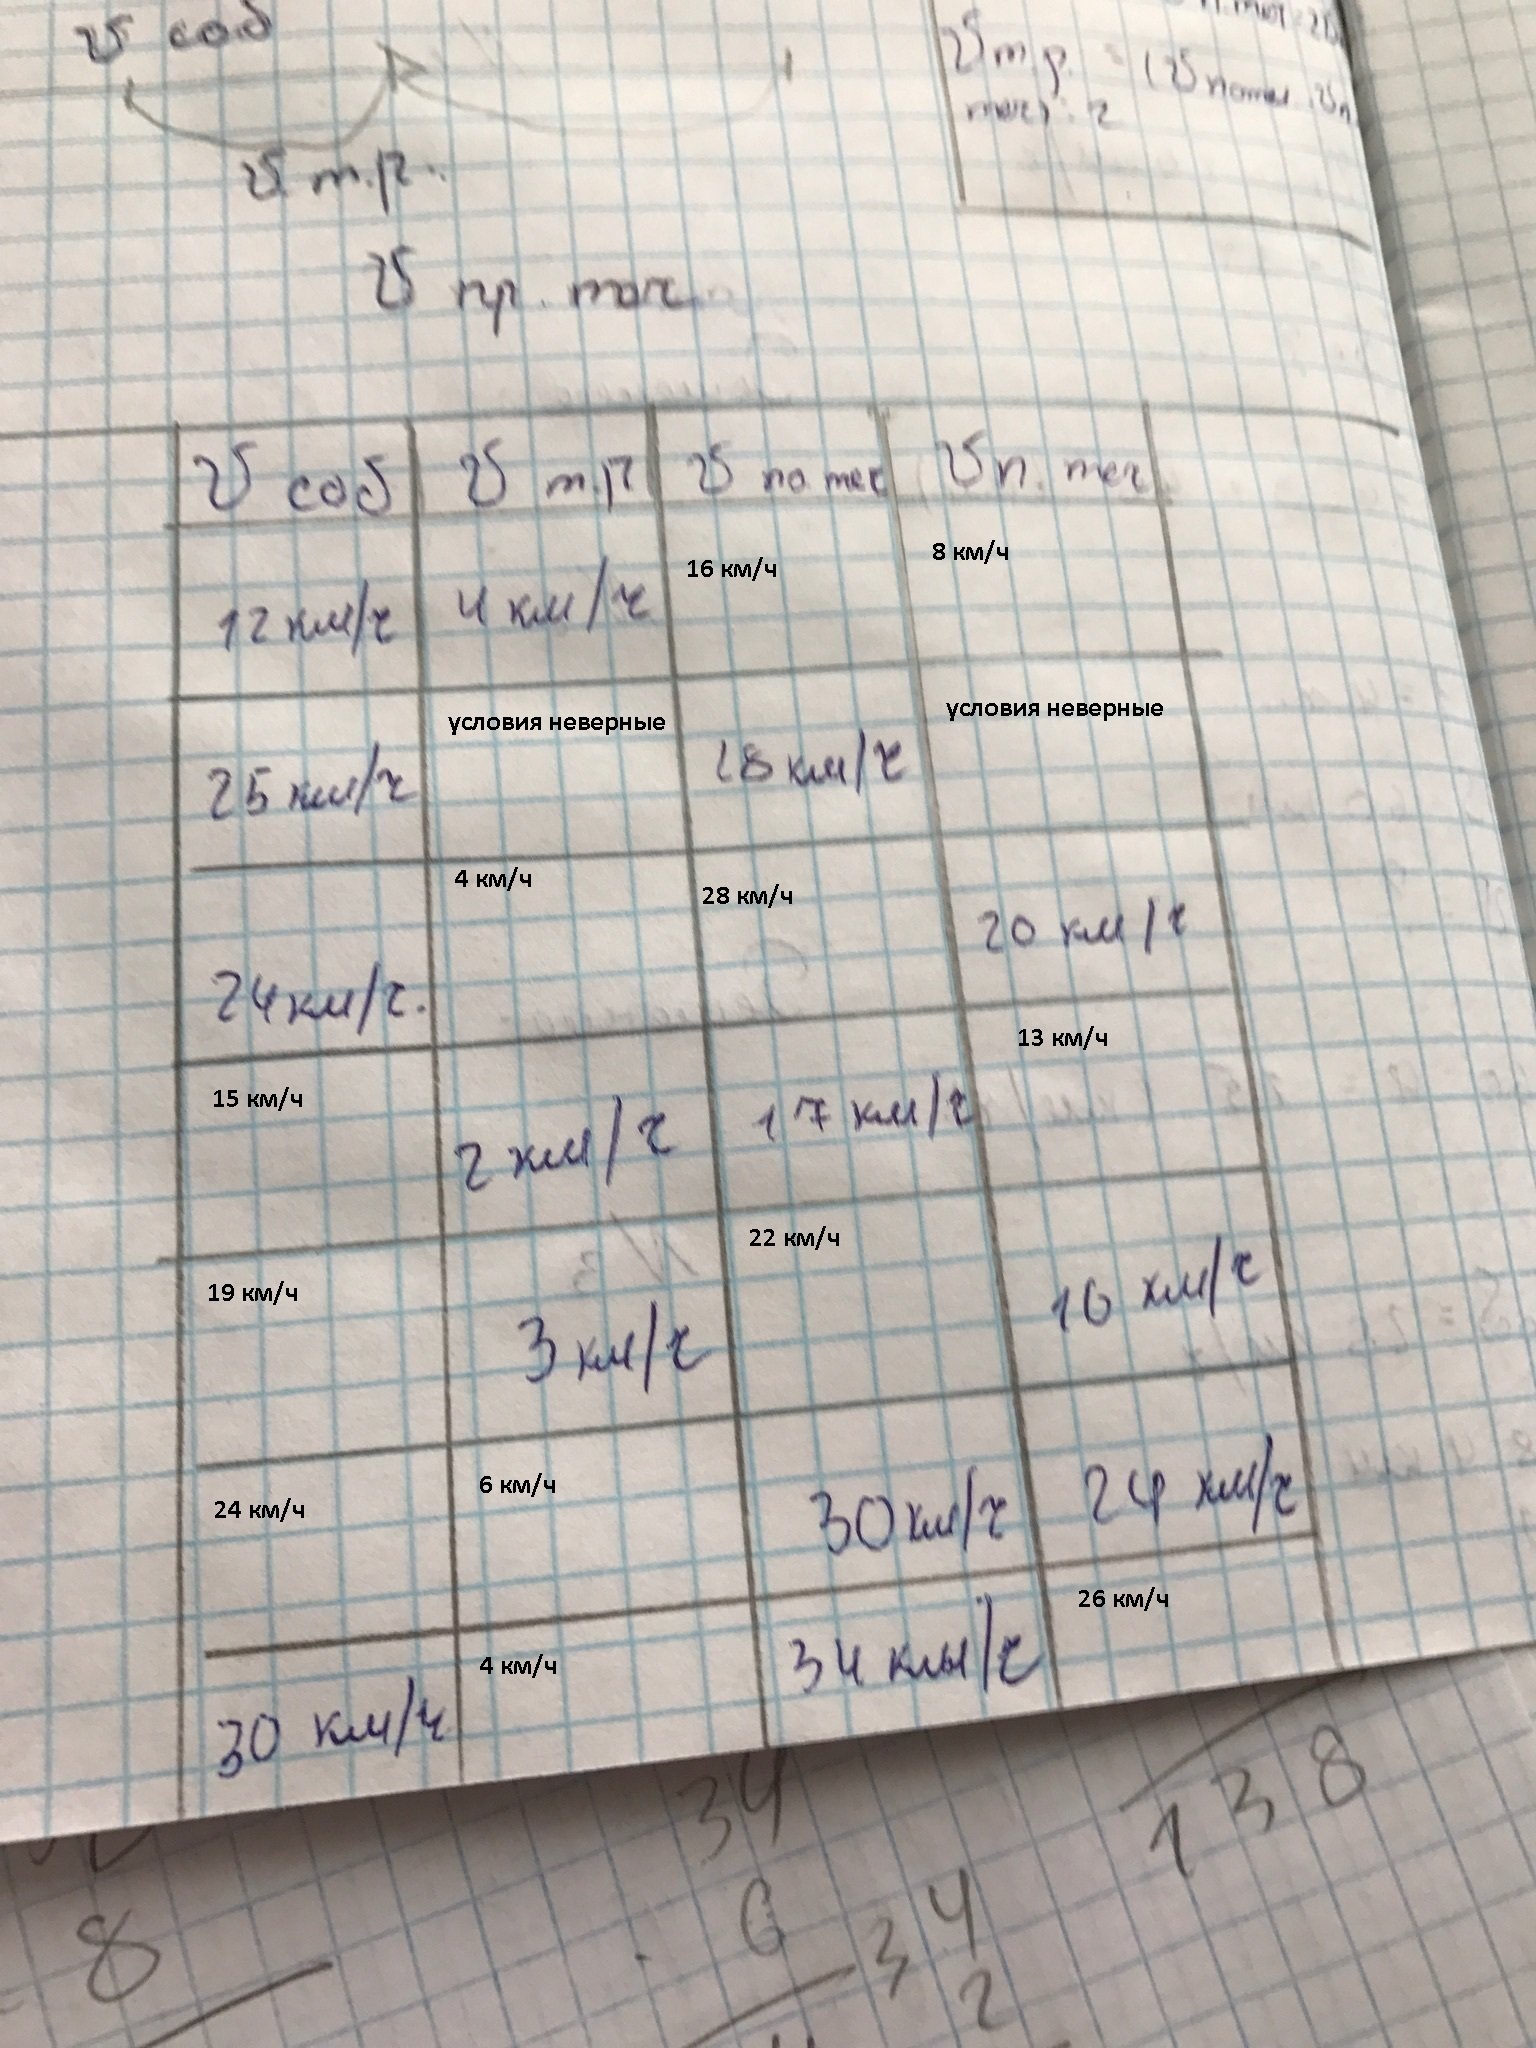 V соб
V т.р.
V пр. теч
V т.р. = (V по теч
теч) : 2
V соб V т.р V по теч V п. теч
12 км/ч 4 км/ч 16 км/ч 8 км/ч
25 км/ч условия неверные 18 км/ч условия неверные
24 км/ч. 4 км/ч 28 км/ч 20 км/ч
15 км/ч 2 км/ч 17 км/ч 13 км/ч
19 км/ч 3 км/ч 22 км/ч 16 км/ч
24 км/ч 6 км/ч 30 км/ч 24 км/ч
30 км/ч 4 км/ч 34 км/ч 26 км/ч
34
138
8
6
34
2